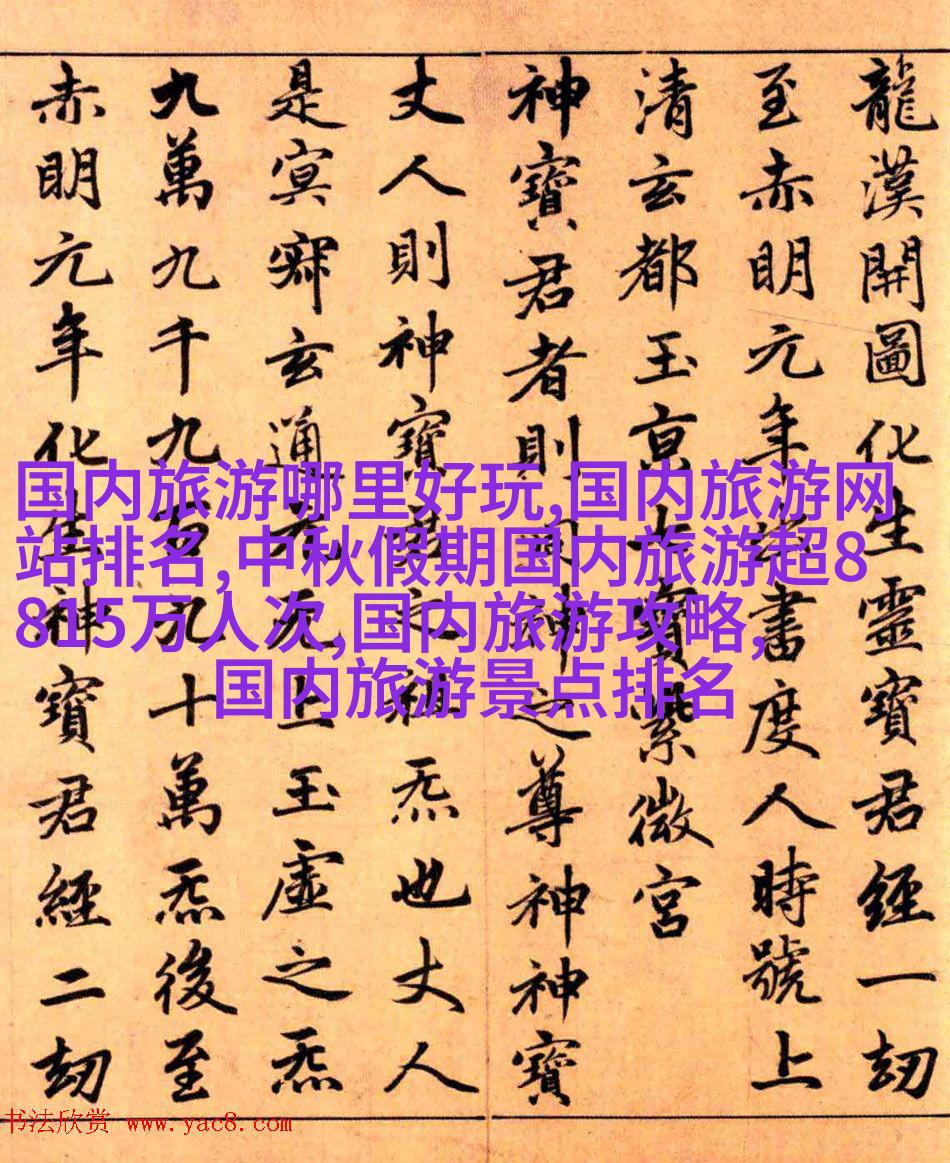 龍漢開圖化生靈寶君經一劫
至赤明元年出書度人時號上
清玄都玉京七寶紫微宮
神寶君者則神之尊神神寶
丈人則神寶君之炁也丈人
是冥寂玄通元无上玉虛之炁
九萬九千九百九十萬炁後至
赤明元年化生神寶君經二劫
国内旅游哪里好玩,国内旅游网
站排名,中秋假期国内旅游超8
815万人次,国内旅游攻略,
国内旅游景点排名
书法欣赏 www.yac8.com